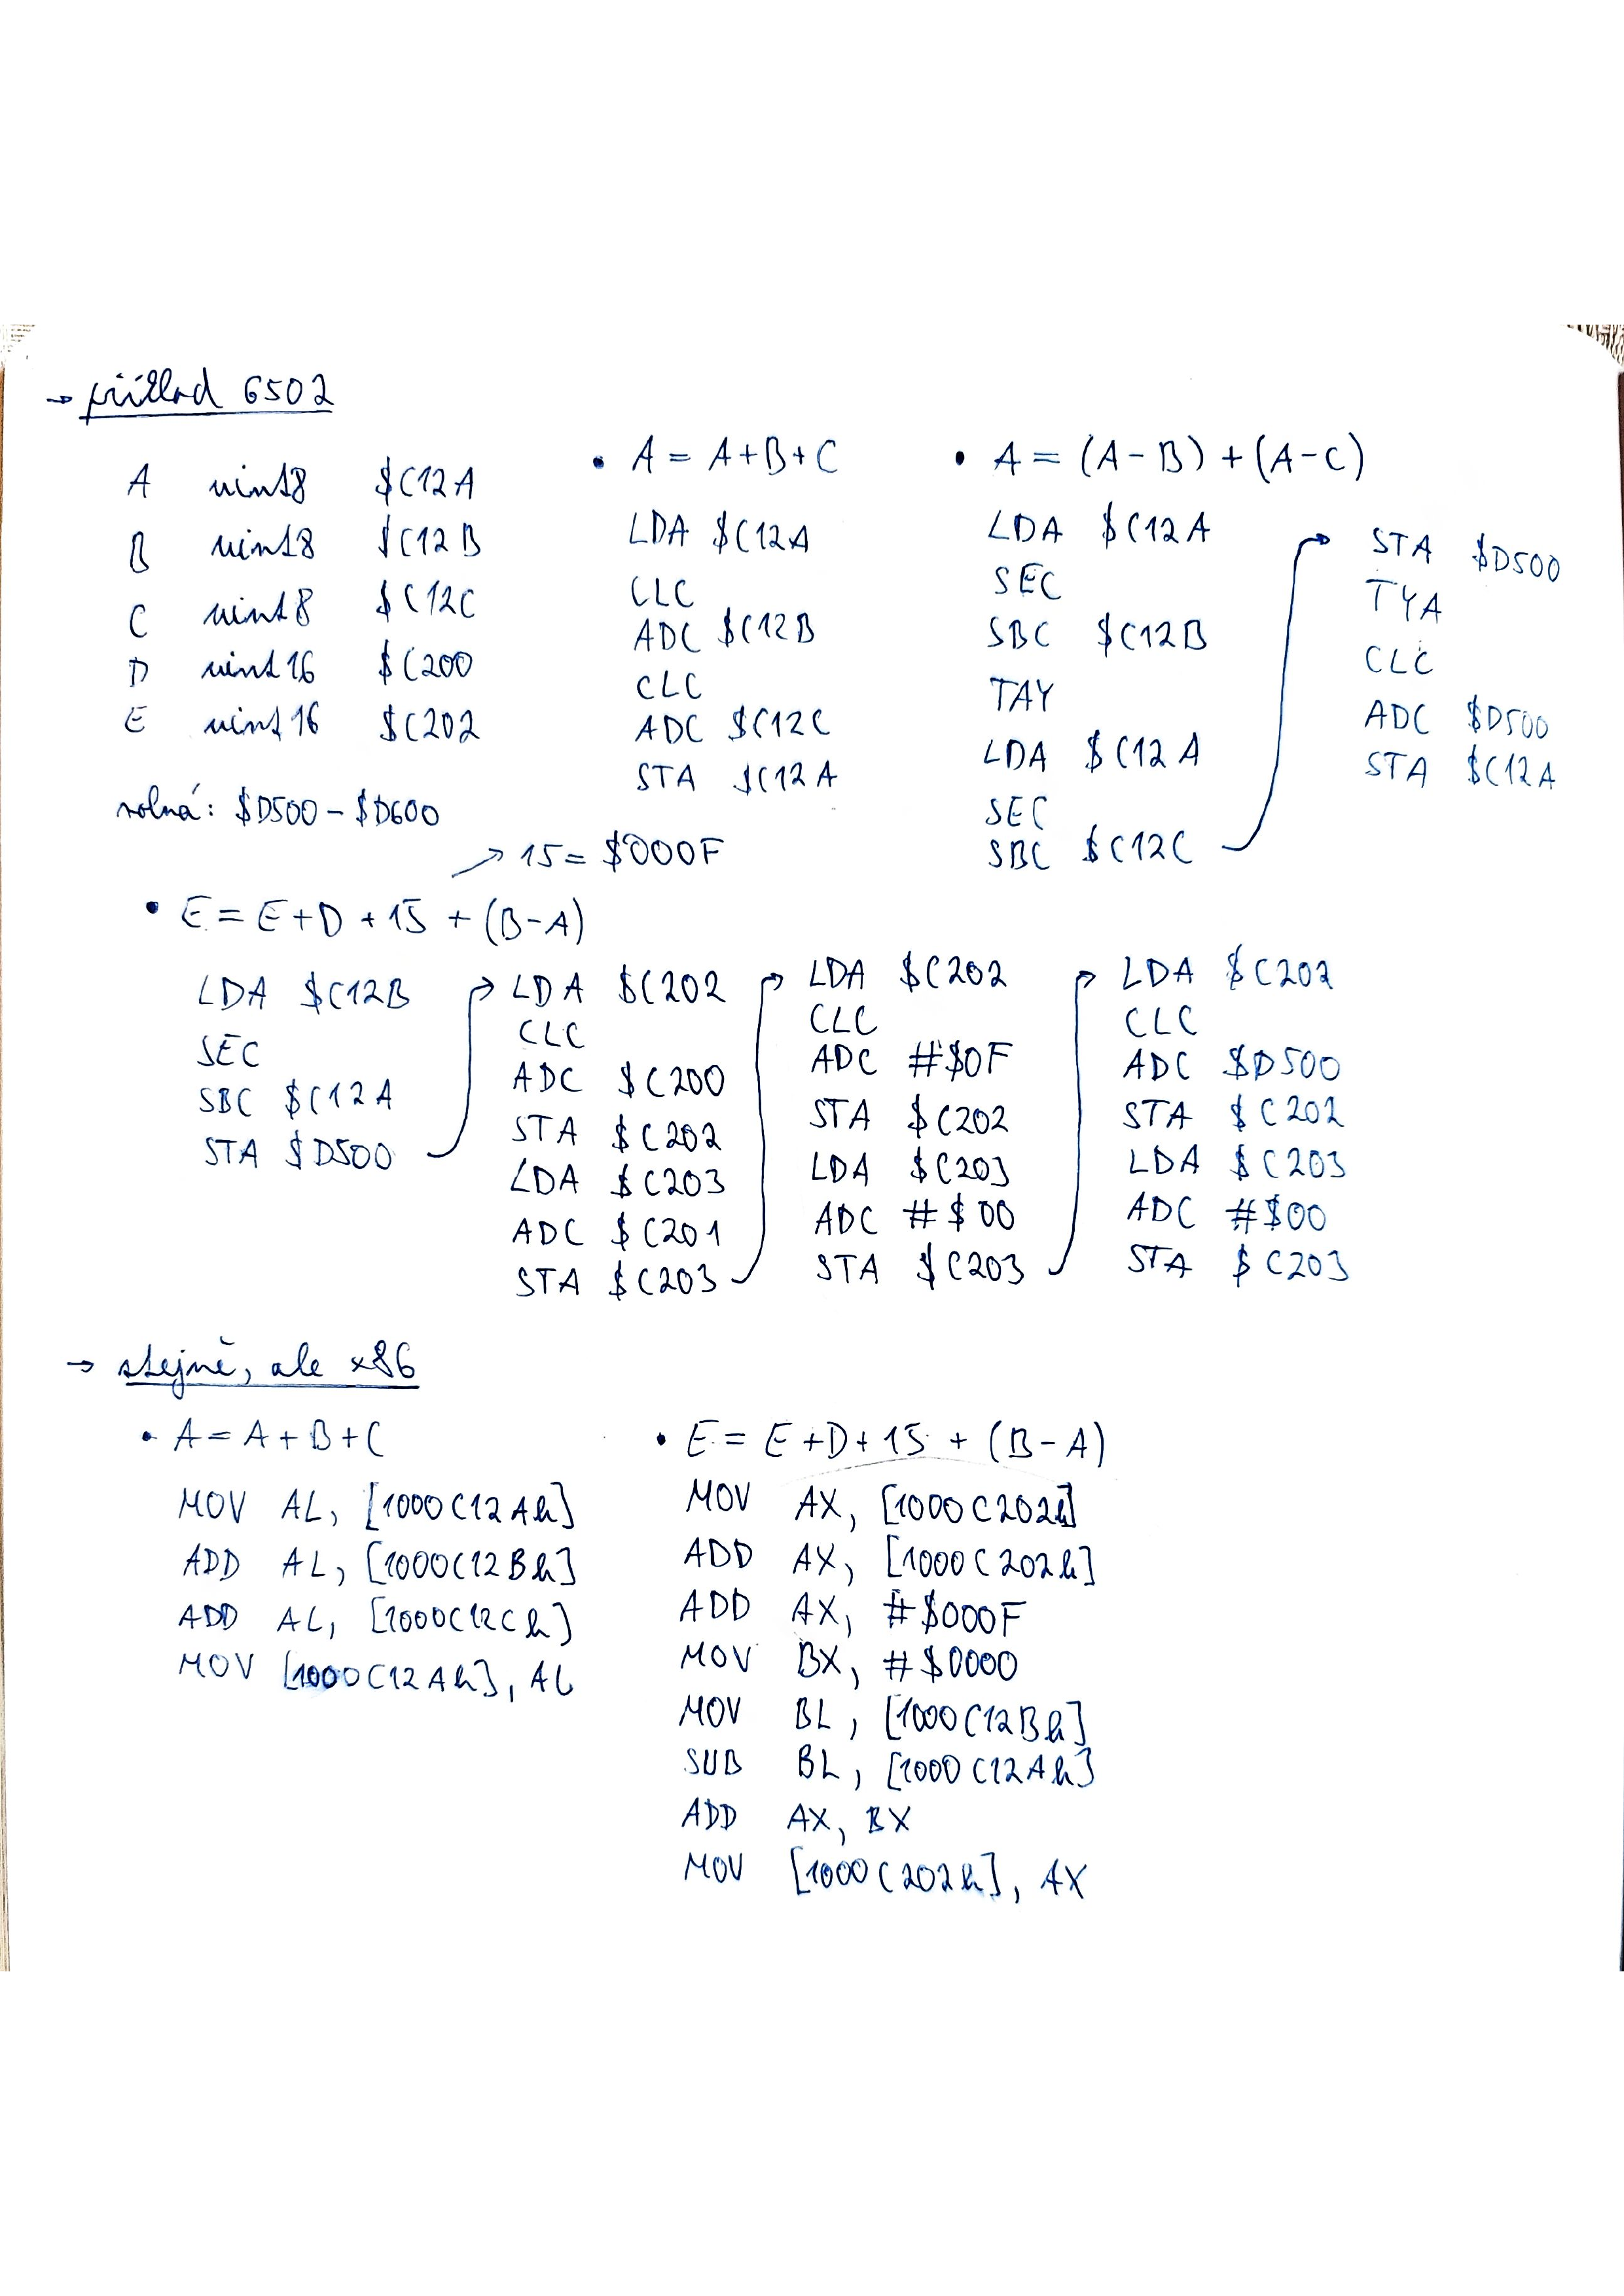 → příklad 6502
A uint8 $C12A
B uint8 $C12B
C uint8 $C12C
D uint16 $C200
E uint16 $C202
volná: $D500 - $D600
• A = A+B+C
LDA $C12A
CLC
ADC $C12B
CLC
ADC $C12C
STA $C12A
• A = (A-B) + (A-C)
LDA $C12A
SEC
SBC $C12B
TAY
LDA $C12A
SEC
SBC $C12C
STA $D500
TYA
CLC
ADC $D500
STA $C12A
→ 15 = $000F
• E = E+D + 15 + (B-A)
LDA $C12B
SEC
SBC $C12A
STA $D500
LDA $C202
CLC
ADC $C200
STA $C202
LDA $C203
ADC $C201
STA $C203
LDA $C202
CLC
ADC #$0F
STA $C202
LDA $C203
ADC #$00
STA $C203
LDA $C202
CLC
ADC $D500
STA $C202
LDA $C203
ADC #$00
STA $C203
→ stejně, ale x86
• A = A + B + C
MOV AL, [1000C12Ah]
ADD AL, [1000C12Bh]
ADD AL, [1000C12Ch]
MOV [1000C12Ah], AL
• E = E + D + 15 + (B - A)
MOV AX, [1000C202h]
ADD AX, [1000C202h]
ADD AX, #$000F
MOV BX, #$0000
MOV BL, [1000C12Bh]
SUB BL, [1000C12Ah]
ADD AX, BX
MOV [1000C202h], AX